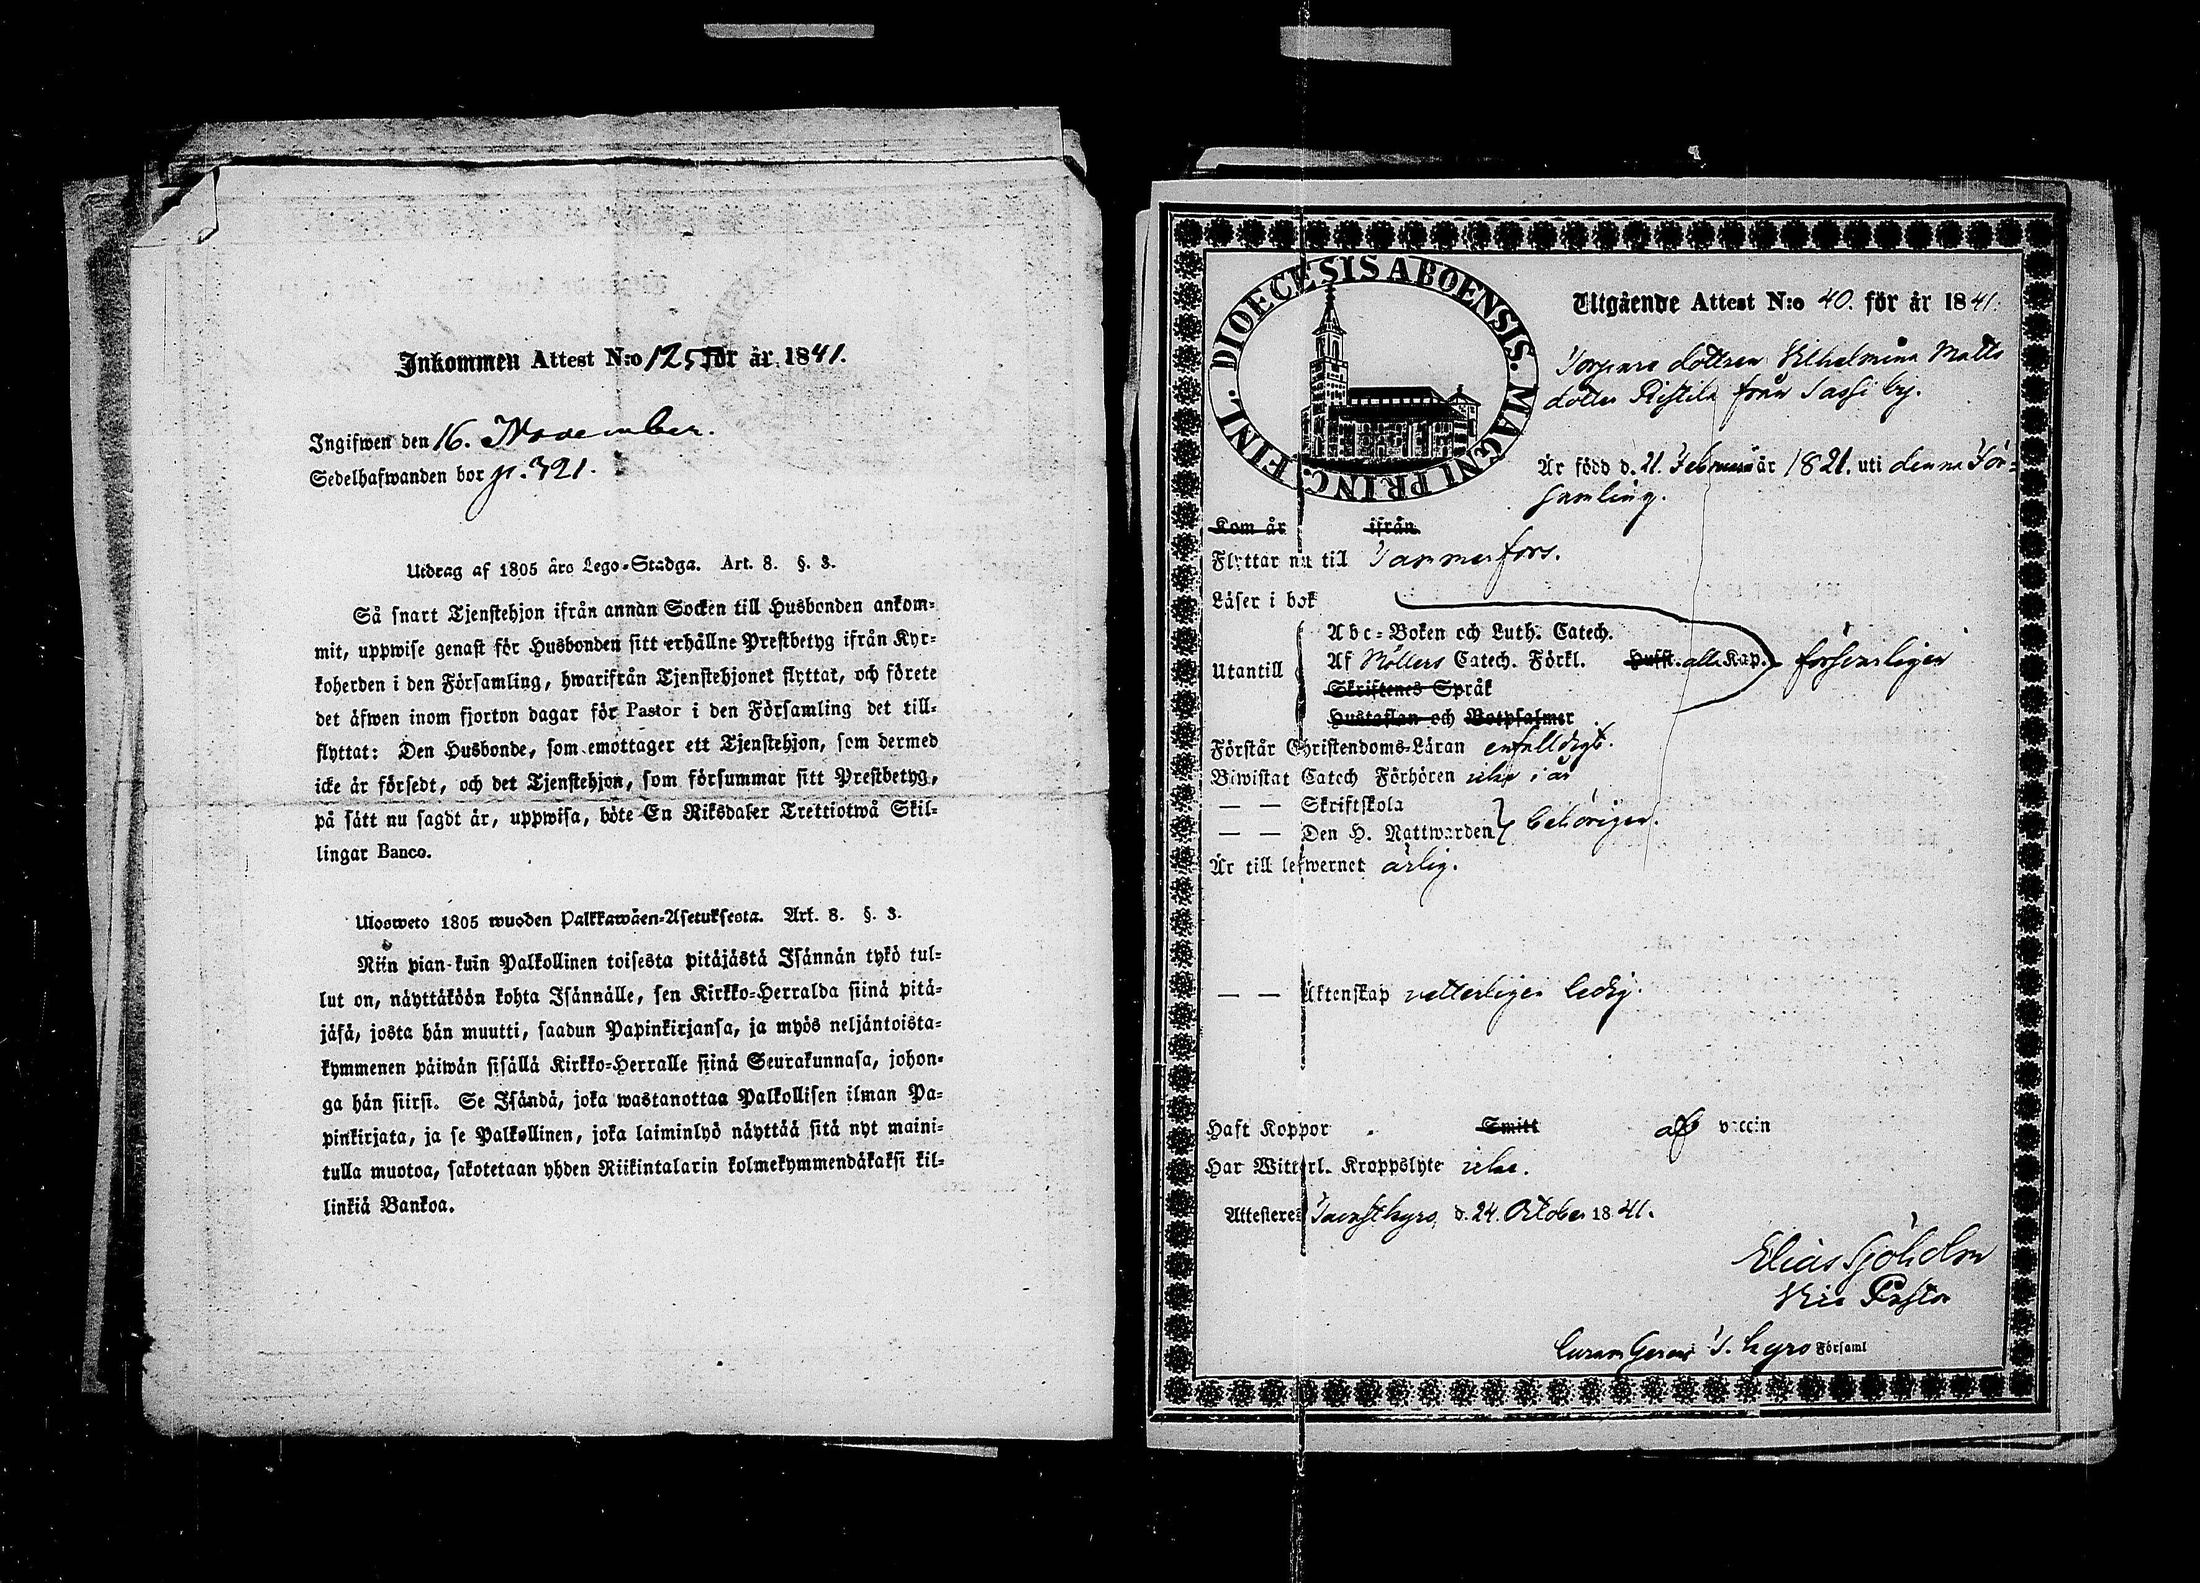 Inkommen Attest N:o 125 för år 1841.
Ingifwen den 16. November.
Sedelhafwanden bor p. 321.
Utdrag af 1805 års Lego-Stadga. Art. 8. §. 3.
Så snart Tjenstehjon ifrån annan Socken till Husbonden ankom-
mit, uppwise genast för Husbonden sitt erhållne Prestbetyg ifrån Kyr-
koherden i den Församling, hwarifrån Tjenstehjonet flyttat, och förete
det äfwen inom fjorton dagar för Pastor i den Församling det till-
flyttat: Den Husbonde, som emottager ett Tjenstehjon, som dermed
icke är försedt, och det Tjenstehjon, som försummar sitt Prestbetyg,
på sätt nu sagdt är, uppwisa, böte En Riksdaler Trettiotwå Skil-
lingar Banco.
Ulosweto 1805 wuoden Palkkawäen-Asetuksesta. Art. 8. §. 3.
Niin pian kuin Palkollinen toisesta pitäjästä Isännän tykö tul-
lut on, näyttäköön kohta Isännälle, sen Kirkko-Herralda siinä pitä-
jäsä, josta hän muutti, saadun Papinkirjansa, ja myös neljäntoista-
kymmenen päiwän sisällä Kirkko-Herralle siinä Seurakunnasa, johon-
ga hän siirsi. Se Isändä, joka wastanottaa Palkollisen ilman Pa-
pinkirjata, ja se Palkollinen, joka laiminlyö näyttää sitä nyt maini-
tulla muotoa, sakotetaan yhden Riikintalarin kolmekymmendäkaksi kil-
linkiä Bankoa.
DIOECESIS ABOENSIS. MAGNI PRINC. FINL.
Utgående Attest N:o 40. för år 1841.
Torpare dottren Vilhelmina Matts
dotter Ristila från Sassi by.
Är född d. 21. Februari år 1821. uti denna För-
samling.
Kom år ifrån
Flyttar nu till Tammerfors.
Läser i bok
Abc-Boken och Luth. Catech.
Utantill Af Möllers Catech. Förkl. Husst. alla Kap. försvarligen
Skriftenes Språk
Hustaflan och Botpsalmer
Förstår Christendoms-Läran enfalldigt.
Biwistat Catech Förhören icke i år
— — Skriftskola
— — Den H. Nattwarden behörigen.
Är till lefwernet ärlig.
— — Äktenskap vetterligen ledig.
Haft Koppor Smitt af vaccin
Har Witterl. Kroppslyte icke.
Attesteres Tavastkyro d. 24. October 1841.
Elias Sjöholm
Vice Pastor
Curam Gerens T. Kyro Församl